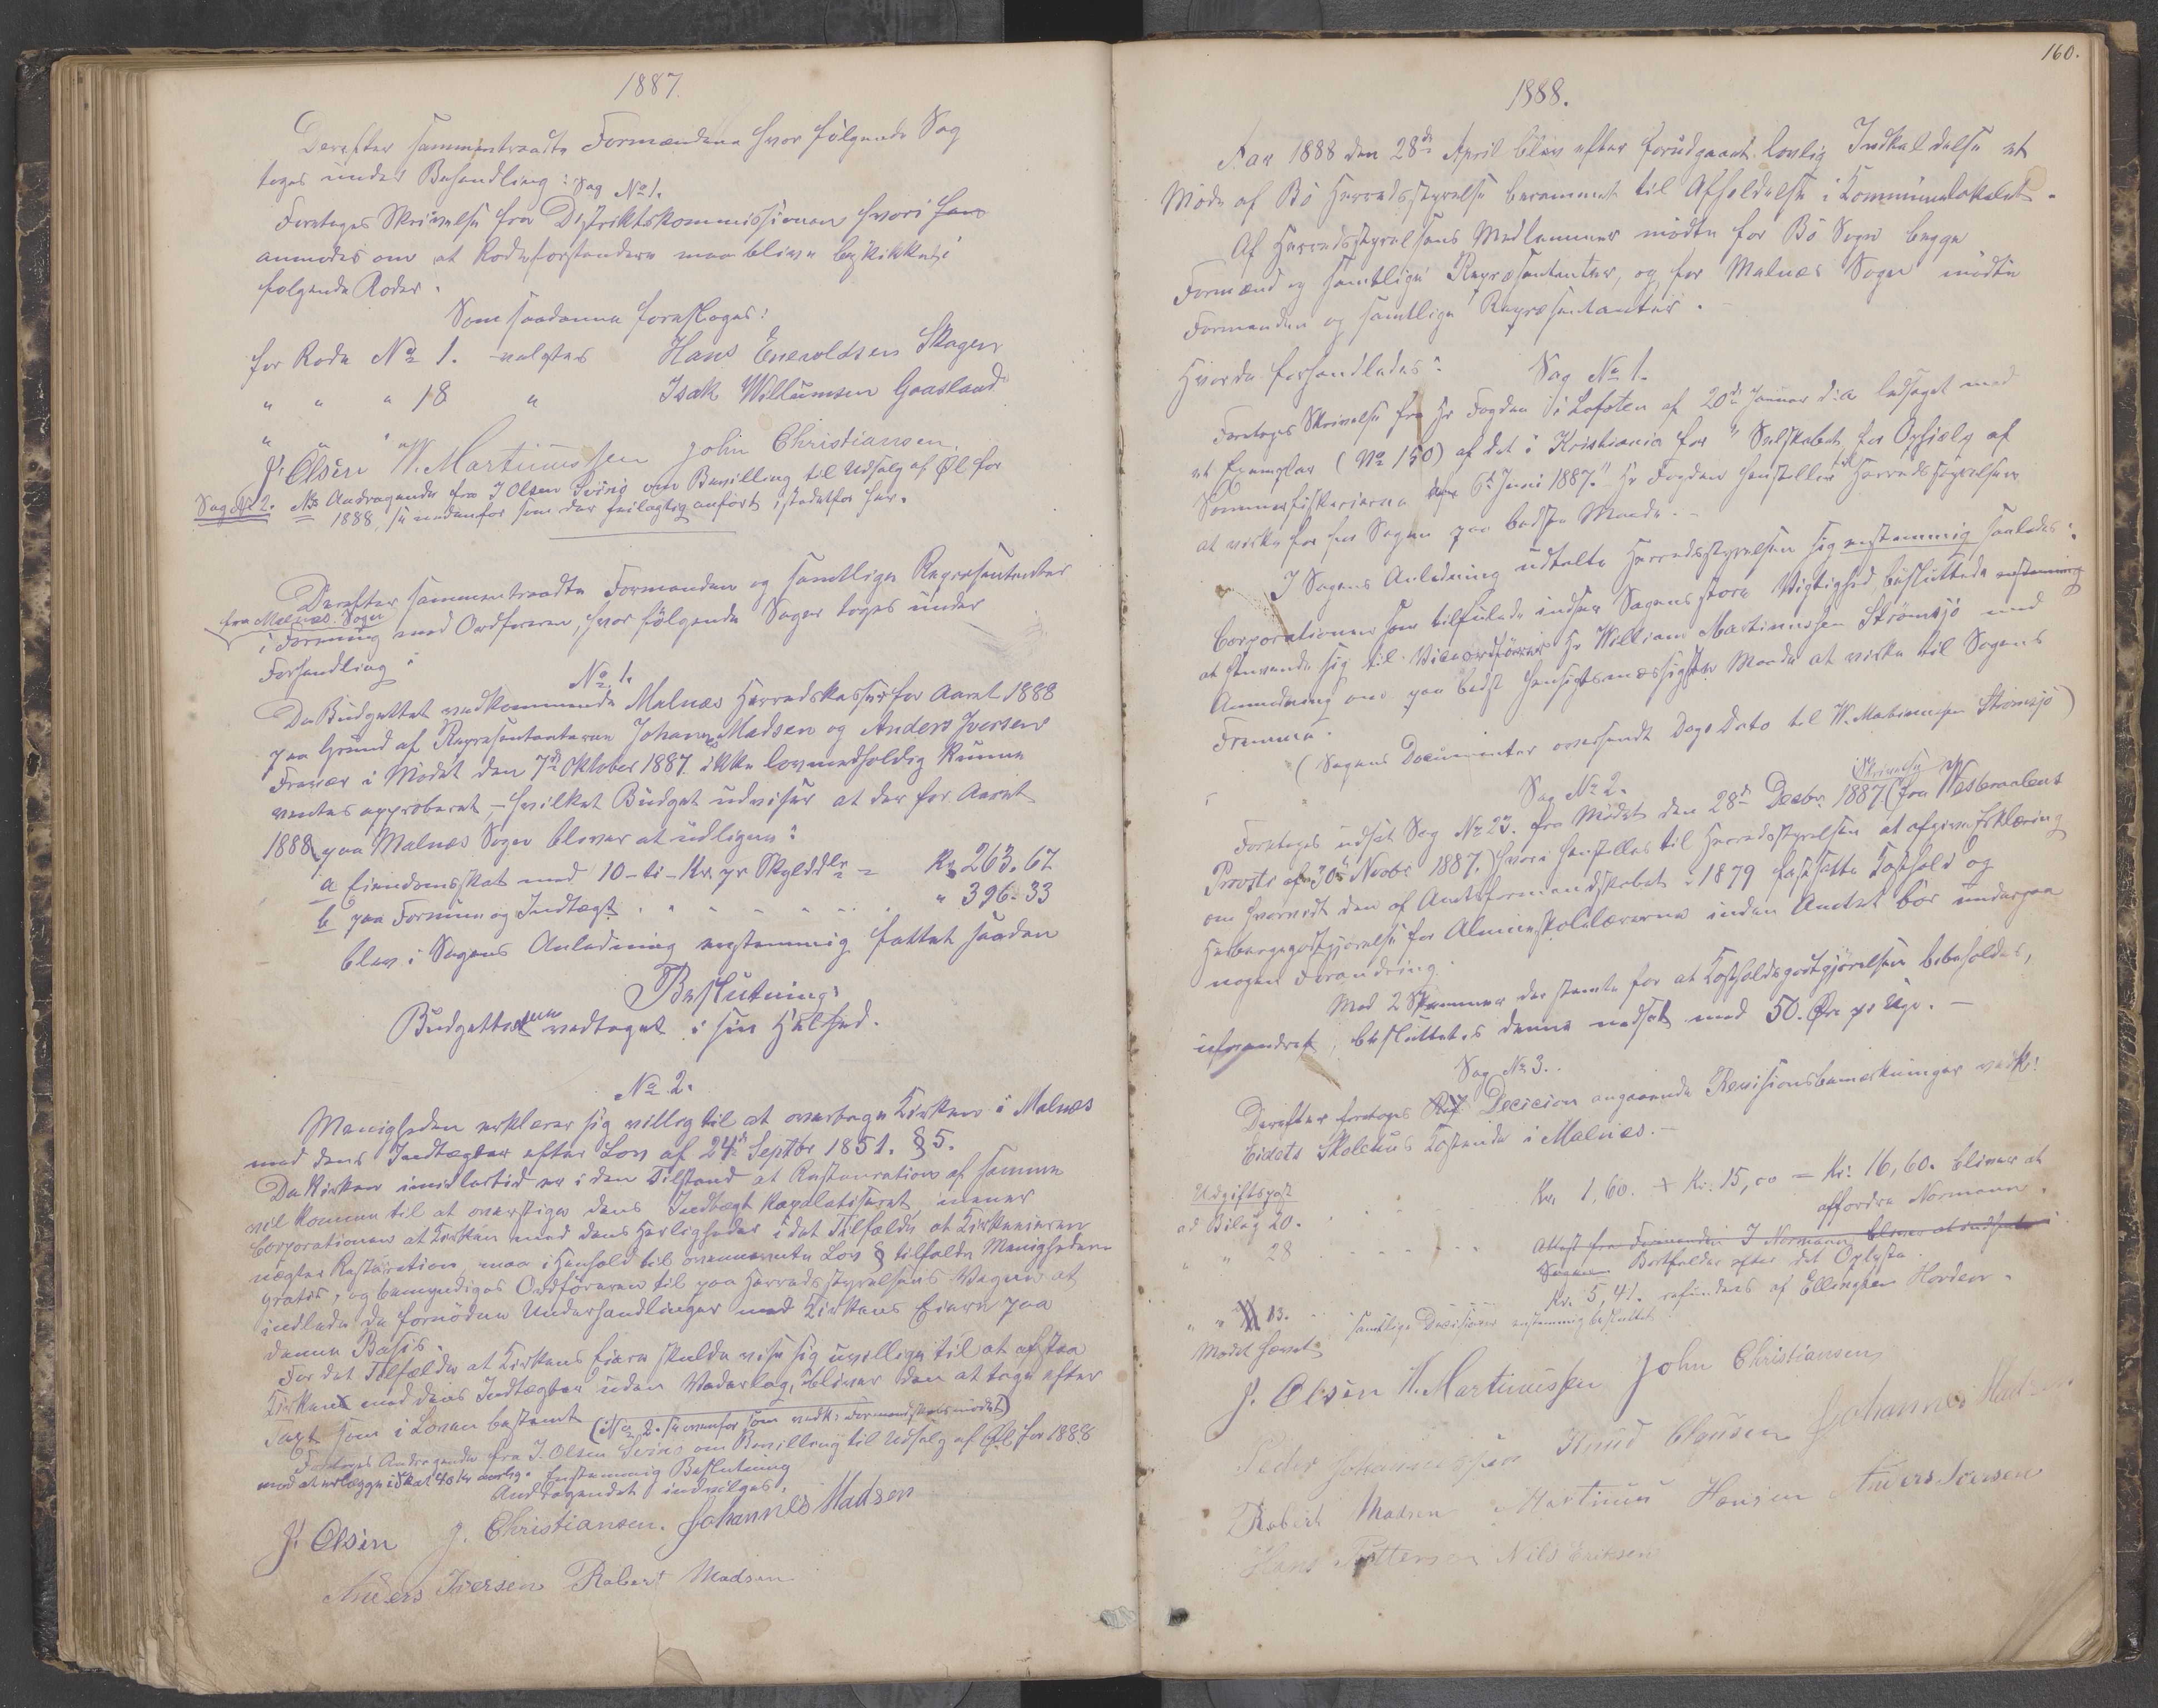 1887.
Derefter sammentraadte Formændene hvor følgende Sag
toges under Behandling: Sag No 1.
Foretoges Skrivelse fra Distriktskommissionen hvori
anmodes om at Rodeforstandere maa blive beskikket i
følgende Roder.
Som saadanne foresloges:
for Rode No 1. valgtes Hans Enevoldsen Skagen
" " " 18 " Isak Willumsen Gaasland
" " " "
J. Olsen W. Martinussen John Christiansen.
Sag No 2. Andragende fra J Olsen Svinø om Bevilling til Udsalg af Øl for
1888, se nedenfor som der feilagtig anført istedetfor her.
Derefter sammentraadte Formanden og samtlige Repræsentanter
fra Malnæs Sogn
i Forening med Ordføreren, hvor følgende Sager toges under
Forhandling:
No 1.
Da Budgettet vedkommende Malnæs Herredskasse for Aaret 1888
paa Grund af Repræsentanterne Johannes Madsen og Anders Iversens
Fravær i Mødet den 7de Oktober 1887 ikke lovmedholdig kunne
ventes approberet, – hvilket Budget udviser at der for Aaret
1888 paa Malnæs Sogn bliver at udligne:
a Eiendomsskat med 10 – ti – Kr. pr Skylddlr = Kr 263.67
b paa Formue og Indtægt . . . . . . " 396-33
blev i Sagens Anledning enstemmig fattet saadan
Beslutning:
Budgettet vedtaget i sin Helhed.
No 2.
Menigheden erklærer sig villig til at overtage Kirken i Malnæs
med dens Indtægter efter Lov af 24de Septbr 1851. § 5.
Da Kirken imidlertid er i den Tilstand at Restauration af samme
vil komme til at overstige dens Indtægt kapalatiseret mener
Corporationen at Kirken med dens Herligheder i det Tilfælde at Kirkeeieren
nægter Restaration, maa i Henhold til ovennævnte Lov § tilfalde Menigheden
gratis, og bemyndiges Ordføreren til paa Herredsstyrelsens Vegne at
indlede de fornødne Underhandlinger med Kirkens Eiere paa
denne Basis.
For det Tilfælde at Kirkens Eiere skulde vise sig uvillige til at afstaa
Kirken med dens Indtægter uden Vederlag, bliver den at tage efter
Taxt som i Loven bestemt (No 2. se ovenfor som vedk: Formandskabsmødet)
Foretoges Andragende fra J. Olsen Svinø om Bevilling til Udsalg af Øl for 1888
mod at erlægge i Skat 40 Kr aarlig. Enstemmig Beslutning
Andragendet indvilges.
J. Olsen J. Christiansen. Johannes Madsen
Anders Iversen Robert Madsen
160.
1888.
Aar 1888 den 28de April blev efter forudgaaet lovlig Indkaldelse et
Møde af Bø Herredsstyrelse berammet til Afholdelse i Kommunelokalet.
Af Herredsstyrelsens Medlemmer mødte for Bø Sogn begge
Formænd og samtlige Repræsentanter, og for Malnæs Sogn mødte
Formanden og samtlige Repræsentanter. –
Hvorda forhandledes: Sag No 1.
Foretoges Skrivelse fra Hr Fogden i Lofoten af 20de Januar d:a ledsaget med
et Exemplar (No 150) af det i Kristiania for "Selskabet for Ophjælp af
Sommerfiskerierne 6te Juni 1887." Hr Fogden henstiller til Herredsstyrelsen
at virke for her Sagen paa bedste Maade. –
I Sagens Anledning udtalte Herredsstyrelsen sig enstemmig saaledes:
Corporationen som tilfulde indser Sagens store Vigtighed, besluttede enstemmig
at henvende sig til Viceordfører Hr William Martinussen Strømsjø med
Anmodning om paa bedst hensigtsmæssigste Maade at virke til Sagens
Fremme.
(Sagens Documenter oversendt Dags Dato til W. Martinussen Strømsjø)
Sag No 2.
Skrivelse
Foretoges udsat Sag No 23. fra Mødet den 28de Decbr 1887 (fra Vesteraalens
Provsti af 30te Novbr 1887.) hvori henstilles til Herredsstyrelsen at afgive Erklæring
om hvorvidt den af Amtsformandskabet i 1879 fastsatte Kosthold og
Herberggodtgjørelse for Almueskolelærerne inden Amtet bør undergaa
nogen Forandring.
Med 2 Stemmer der stemte for at Kostholdsgodtgjørelsen bibeholdes,
uforandret, besluttedes denne nedsat med 50. Øre pr Uge. –
Sag No 3.
Derefter foretoges Decision angaaende Revisionsbemærkninger vedk:
Eidets Skolehus Kostende i Malnæs. –
Udgiftspost
ad Bilag 20. . . . Kr. 1,60. + Kr: 15,00 = Kr: 16,60. bliver at
affordre Normann.
" " 28 . . . . Attest fra Formanden J Normann bliver at indhente
Bortfalder efter det Oplyste.
" " 13. Kr. 5,41. refunderes af Ellingsen Hordem.
Samtlige Decisioner enstemmig besluttet
Mødet hævet
J. Olsen W. Martinussen John Christiansen
Peder Johannessen Knud Clausen Johannes Madsen
Robert Madsen Martinus Hansen Anders Iversen
Hans Pettersen Nils Eriksen